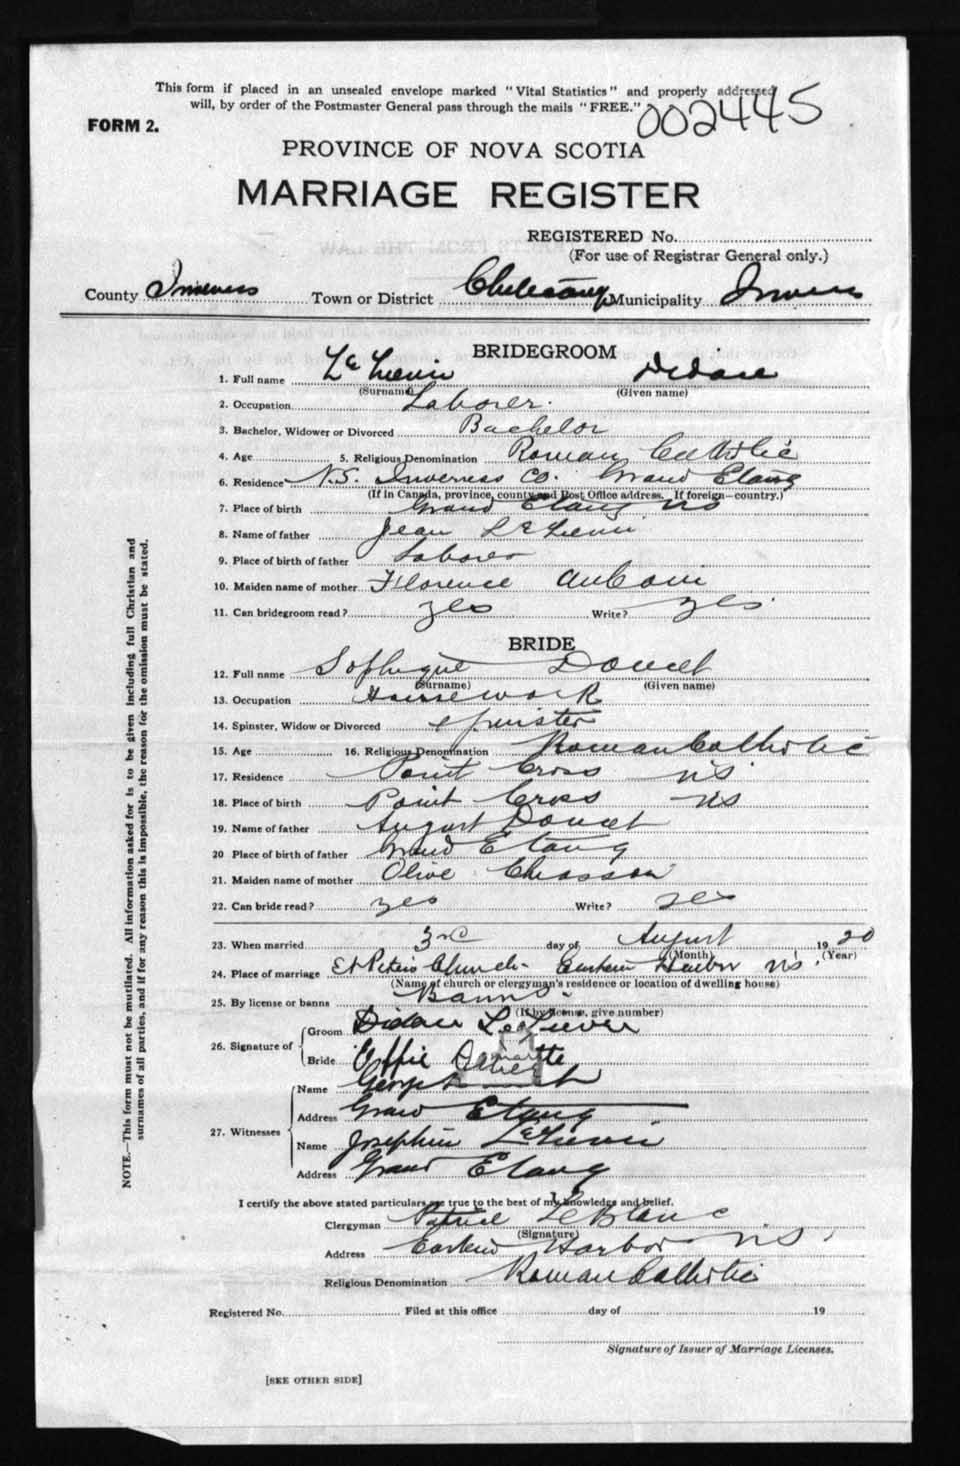 This form if placed in an unsealed envelope marked "Vital Statistics" and properly addressed
will, by order of the Postmaster General pass through the mails "FREE."
002445
FORM 2.
PROVINCE OF NOVA SCOTIA
MARRIAGE REGISTER
REGISTERED No.
(For use of Registrar General only.)
County Inverness Town or District Municipality Inverness
BRIDEGROOM
1. Full name Didace
(Surname) (Given name)
2. Occupation Laborer.
3. Bachelor, Widower or Divorced Bachelor
4. Age 5. Religious Denomination Roman Catholic
6. Residence N.S. Inverness Co. Grand Etang
(If in Canada, province, county and Post Office address. If foreign—country.)
7. Place of birth Grand Etang NS
8. Name of father Jean
9. Place of birth of father Laborer
10. Maiden name of mother Florence AuCoin
11. Can bridegroom read? yes Write? yes
BRIDE
12. Full name Doucet
(Surname) (Given name)
13. Occupation Housework
14. Spinster, Widow or Divorced spinster
15. Age 16. Religious Denomination Roman Catholic
17. Residence Point Cross NS
18. Place of birth Point Cross NS
19. Name of father August Doucet
20 Place of birth of father Grand Etang
21. Maiden name of mother Olive Chiasson
22. Can bride read? yes Write? yes
23. When married 3rd day of August 1920
(Month) (Year)
24. Place of marriage St Peters Church Eastern Harbor NS.
(Name of church or clergyman's residence or location of dwelling house)
25. By license or banns Banns.
(If by license, give number)
26. Signature of Groom
Bride
27. Witnesses Name George
Address Grand Etang
Name
Address Grand Etang
I certify the above stated particulars are true to the best of my knowledge and belief.
Clergyman LeBlanc
(Signature)
Address Eastern Harbor N.S.
Religious Denomination Roman Catholic
Registered No. Filed at this office day of 19
Signature of Issuer of Marriage Licenses.
[SEE OTHER SIDE]
NOTE.—This form must not be mutilated. All information asked for is to be given including full Christian and
surnames of all parties, and if for any reason this is impossible, the reason for the omission must be stated.